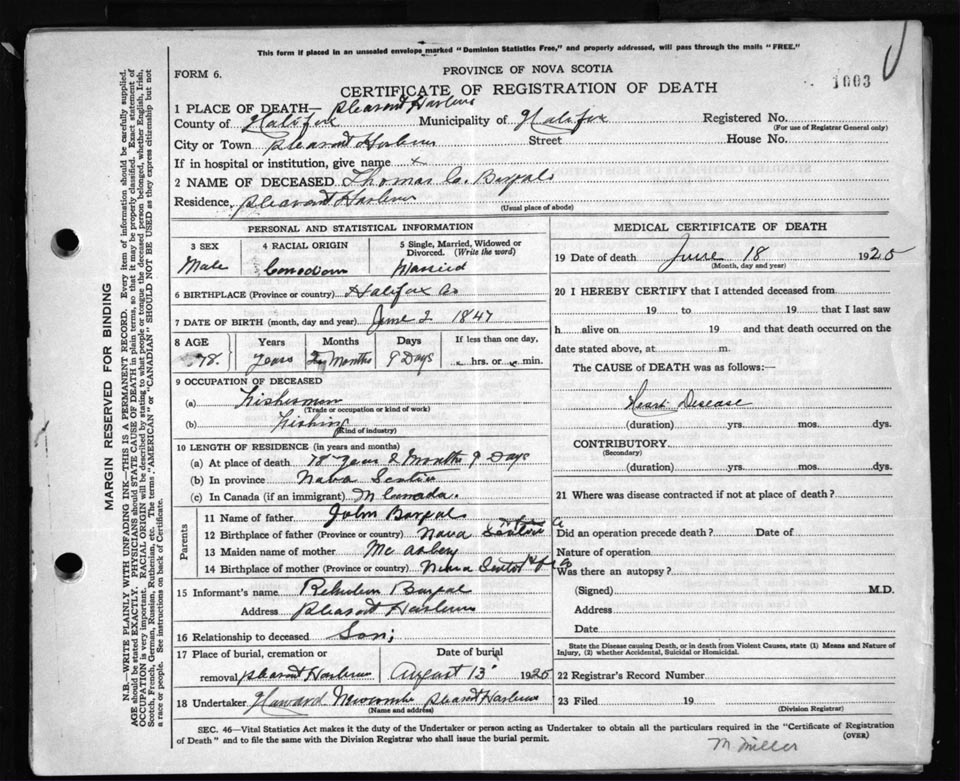 This form if placed in an unsealed envelope marked "Dominion Statistics Free," and properly addressed, will pass through the mails "FREE."
FORM 6.
PROVINCE OF NOVA SCOTIA
1003
CERTIFICATE OF REGISTRATION OF DEATH
1 PLACE OF DEATH— Pleasant Harbour
County of Halifax Municipality of Halifax Registered No.
(For use of Registrar General only)
City or Town Pleasant Harbour Street House No.
If in hospital or institution, give name x
2 NAME OF DECEASED Thomas
Residence, Pleasant Harbour
(Usual place of abode)
PERSONAL AND STATISTICAL INFORMATION
3 SEX
Male
4 RACIAL ORIGIN
Canadian
5 Single, Married, Widowed or Divorced. (Write the word)
Married
6 BIRTHPLACE (Province or country) Halifax Co
7 DATE OF BIRTH (month, day and year) June 2 1847
8 AGE Years Months Days If less than one day,
78 Years 2 Months 9 Days hrs. or min.
9 OCCUPATION OF DECEASED
(a) Fisherman
(Trade or occupation or kind of work)
(b) Fishing
(Kind of industry)
10 LENGTH OF RESIDENCE (in years and months)
(a) At place of death 78 Years 2 Months 9 Days
(b) In province Nova Scotia
(c) In Canada (if an immigrant) Canada.
Parents
11 Name of father John
12 Birthplace of father (Province or country) Nova Scotia
13 Maiden name of mother
14 Birthplace of mother (Province or country) Nova Scotia
15 Informant's name
Address Pleasant Harbour
16 Relationship to deceased Son;
17 Place of burial, cremation or Date of burial
removal Pleasant Harbour August 13 1925
18 Undertaker Howard Newcomb Pleasant Harbour
(Name and address)
MEDICAL CERTIFICATE OF DEATH
19 Date of death June 18 1925
(Month, day and year)
20 I HEREBY CERTIFY that I attended deceased from
19 to 19 that I last saw
h alive on 19 and that death occurred on
date stated above, at m.
The CAUSE of DEATH was as follows:—
Heart Disease
(duration) yrs. mos. dys.
CONTRIBUTORY
(Secondary)
(duration) yrs. mos. dys.
21 Where was disease contracted if not at place of death?
Did an operation precede death? Date of
Nature of operation
Was there an autopsy?
(Signed) M.D.
Address
Date
State the Disease causing Death, or in death from Violent Causes, state (1) Means and Nature of
Injury, (2) whether Accidental, Suicidal or Homicidal.
22 Registrar's Record Number
23 Filed 19
(Division Registrar)
SEC. 46—Vital Statistics Act makes it the duty of the Undertaker or person acting as Undertaker to obtain all the particulars required in the "Certificate of Registration
of Death" and to file the same with the Division Registrar who shall issue the burial permit.
(OVER)
M Miller
MARGIN RESERVED FOR BINDING
N.B.—WRITE PLAINLY WITH UNFADING INK—THIS IS A PERMANENT RECORD. Every item of information should be carefully supplied.
AGE should be stated EXACTLY. PHYSICIANS should STATE CAUSE OF DEATH in plain terms, so that it may be properly classified. Exact statement of
OCCUPATION is very important. RACIAL ORIGIN will be described by stating to what people or tongue the deceased person belonged, whether English, Irish,
Scotch, French, German, Russian, Ruthenian, etc. The terms "AMERICAN" or "CANADIAN" SHOULD NOT BE USED as they express citizenship but not
a race or people. See instructions on back of Certificate.